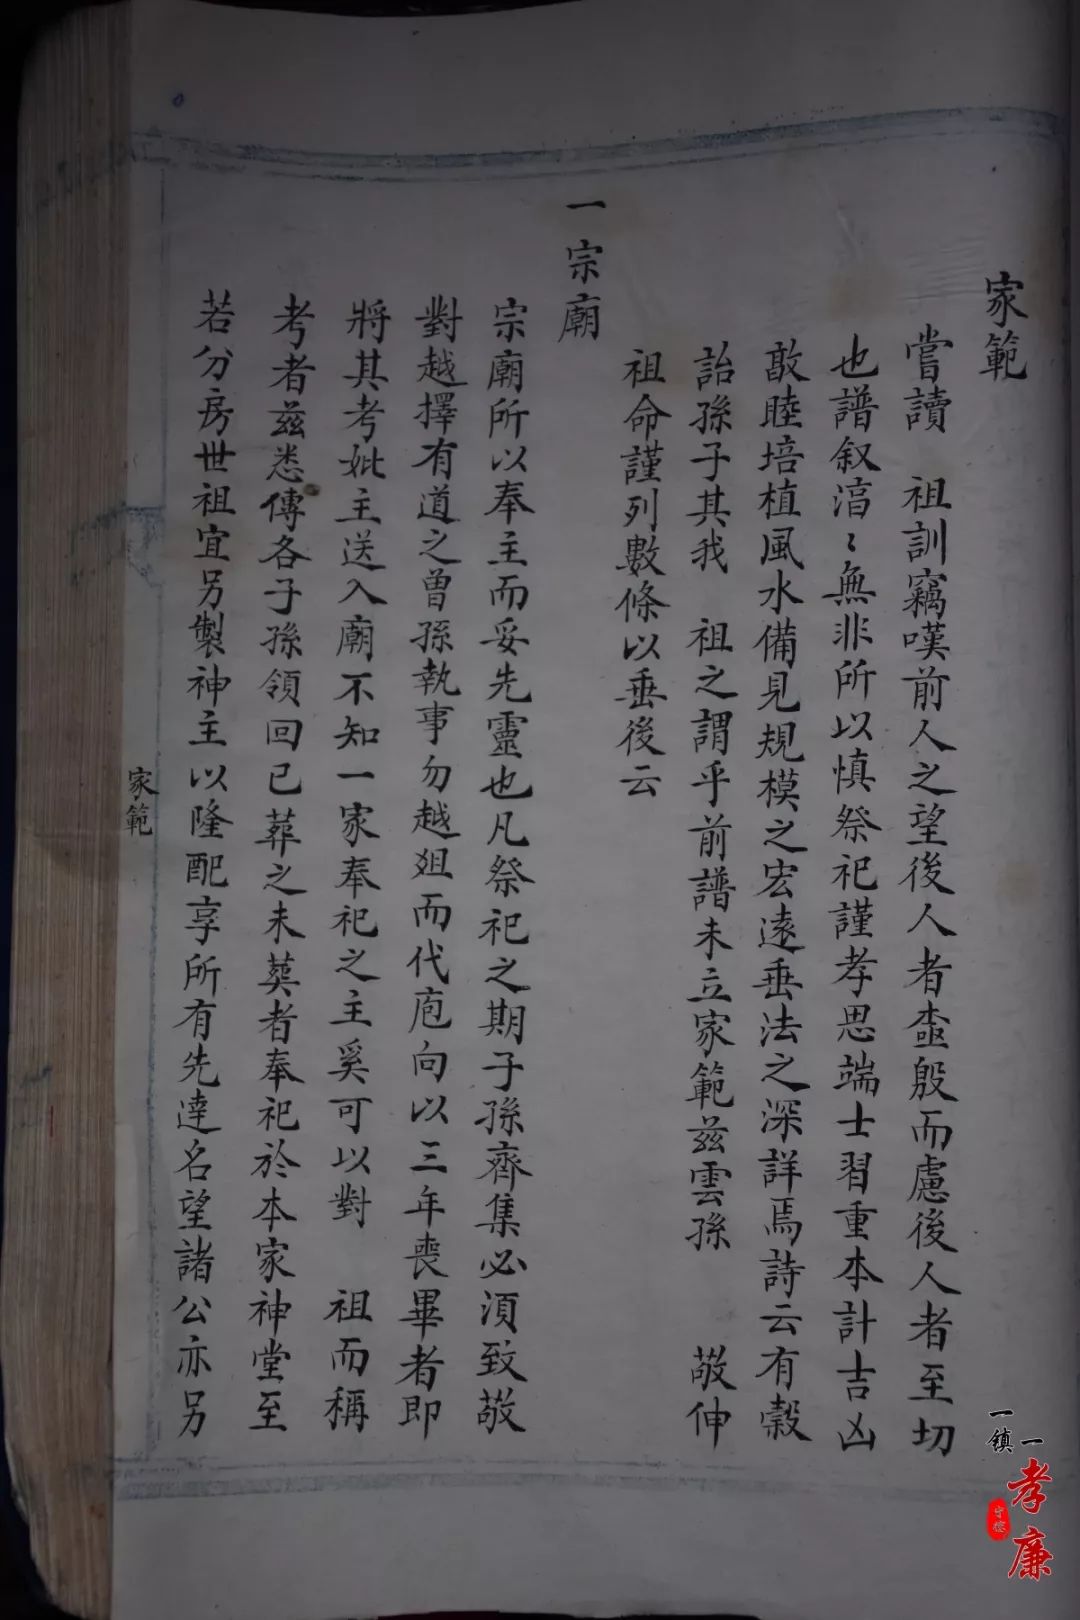 家範
嘗讀　祖訓竊嘆前人之望後人者盍殷而慮後人者至切
也譜叙㴞〻無非所以慎祭祀謹孝思端士習重本計吉凶
敦睦培植風水備見規模之宏遠垂法之深詳焉詩云有穀
詒孫子其我　祖之謂乎前譜未立家範茲雲孫　敬伸
祖命謹列數條以垂後云
一宗廟
宗廟所以奉主而妥先靈也凡祭祀之期子孫齊集必須致敬
對越擇有道之曾孫執事勿越俎而代庖向以三年喪畢者即
將其考妣主送入廟不知一家奉祀之主奚可以對　祖而稱
考者茲悉傳各子孫領回已葬之未葬者奉祀於本家神堂至
若分房世祖宜另製神主以隆配享所有先達名望諸公亦另
家範
一鎮一孝廉